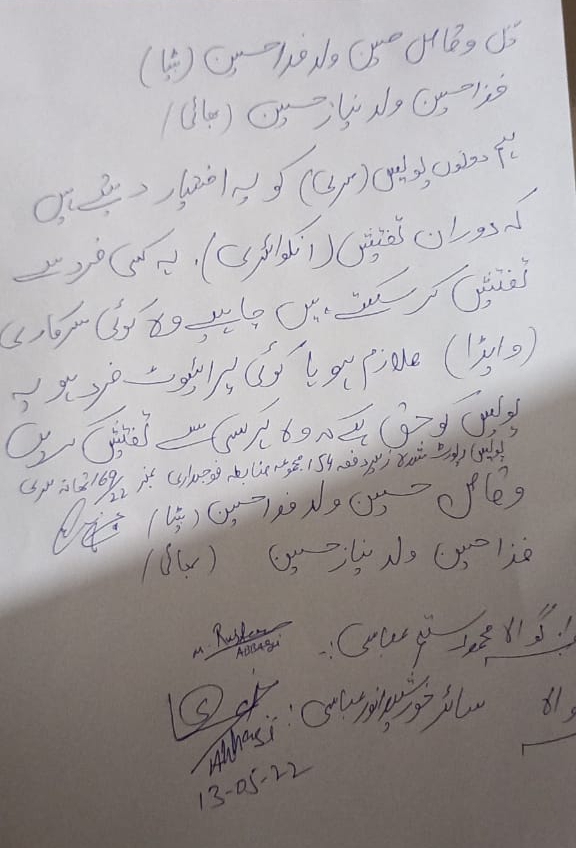 وقاص حسین ولد فدا حسین (بیٹا)
فدا حسین ولد نیاز حسین (بھائی)
ہم دونوں پولیس (مری) کو یہ اختیار دیتے ہیں
کہ دوران تفتیش (انکوائری)، یہ کسی فرد سے
تفتیش کر سکتے ہیں چاہیے وہ کوئی سرکاری
(واپڈا) ملازم ہو یا کوئی پرائیوٹ فرد ہو یہ
پولیس کو حق ہے کہ وہ ہر کسی سے تفتیش کریں
پولیس رپورٹ شدہ زیر دفعہ 154 مجموعہ ضابطہ فوجداری نمبر 169/22 تھانہ مری
وقاص حسین ولد فدا حسین (بیٹا)
فدا حسین ولد نیاز حسین (بھائی)
گواہ محمد رستم عباسی:-
M. Rustam
ABBASI
خورشید انور عباسی:
Abbasi
13-05-22